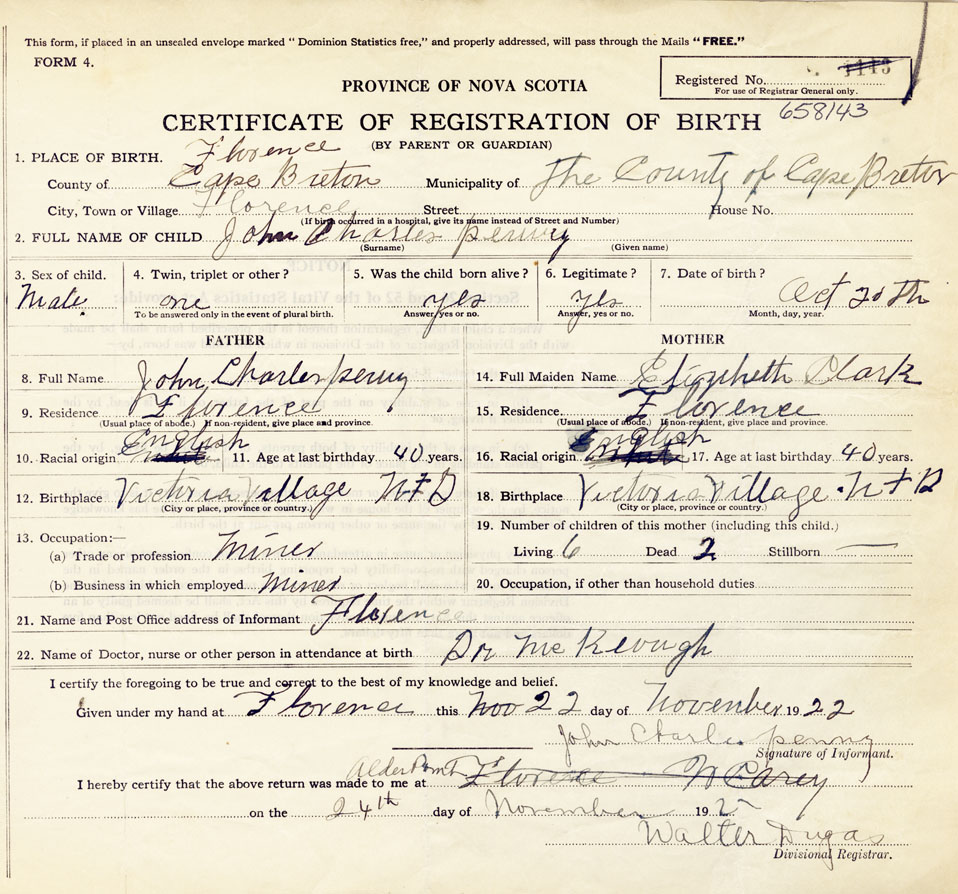 This form, if placed in an unsealed envelope marked "Dominion Statistics free," and properly addressed, will pass through the Mails "FREE."
FORM 4.
Registered No. 1113
For use of Registrar General only.
PROVINCE OF NOVA SCOTIA
658143
CERTIFICATE OF REGISTRATION OF BIRTH
(BY PARENT OR GUARDIAN)
1. PLACE OF BIRTH. Florence
County of Cape Breton Municipality of The County of Cape Breton
City, Town or Village Florence Street House No.
(If birth occurred in a hospital, give its name instead of Street and Number)
2. FULL NAME OF CHILD John Charles penny
(Surname) (Given name)
3. Sex of child. 4. Twin, triplet or other? 5. Was the child born alive? 6. Legitimate? 7. Date of birth?
Male one yes yes Oct 20th
To be answered only in the event of plural birth. Answer, yes or no. Answer, yes or no. Month, day, year.
FATHER MOTHER
8. Full Name John Charles penny 14. Full Maiden Name Elizabeth Clark
9. Residence Florence 15. Residence. Florence
(Usual place of abode.) If non-resident, give place and province. (Usual place of abode.) If non-resident, give place and province.
10. Racial origin English 11. Age at last birthday 40 years. 16. Racial origin English 17. Age at last birthday 40 years.
12. Birthplace Victoria Village NFD 18. Birthplace Victoria Village NFD
(City or place, province or country.) (City or place, province or country.)
13. Occupation:— 19. Number of children of this mother (including this child.)
(a) Trade or profession Miner Living 6 Dead 2 Stillborn —
(b) Business in which employed Miner 20. Occupation, if other than household duties
21. Name and Post Office address of Informant Florence
22. Name of Doctor, nurse or other person in attendance at birth Dr McKeough
I certify the foregoing to be true and correct to the best of my knowledge and belief.
Given under my hand at Florence this Nov 22 day of November 1922
John Charles penny
Signature of Informant.
I hereby certify that the above return was made to me at Alder Point Florence W Carey
on the 24th day of November 192
Walter Dugas
Divisional Registrar.